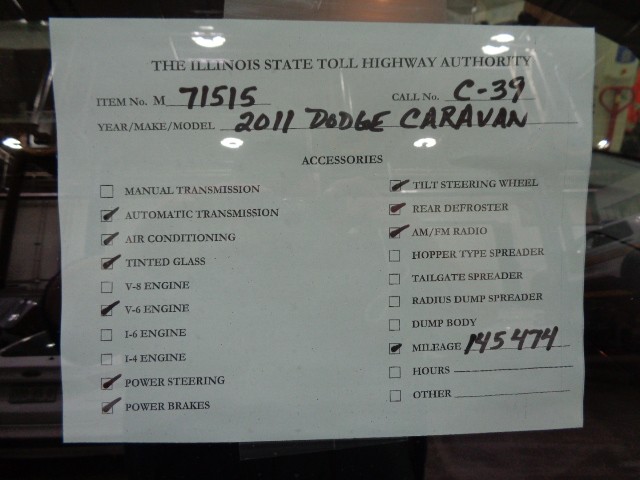 THE ILLINOIS STATE TOLL HIGHWAY AUTHORITY
ITEM No. M 71515 CALL No. C-39
YEAR/MAKE/MODEL 2011 DODGE CARAVAN
ACCESSORIES
MANUAL TRANSMISSION
AUTOMATIC TRANSMISSION
AIR CONDITIONING
TINTED GLASS
V-8 ENGINE
V-6 ENGINE
I-6 ENGINE
I-4 ENGINE
POWER STEERING
POWER BRAKES
TILT STEERING WHEEL
REAR DEFROSTER
AM/FM RADIO
HOPPER TYPE SPREADER
TAILGATE SPREADER
RADIUS DUMP SPREADER
DUMP BODY
MILEAGE 145474
HOURS
OTHER